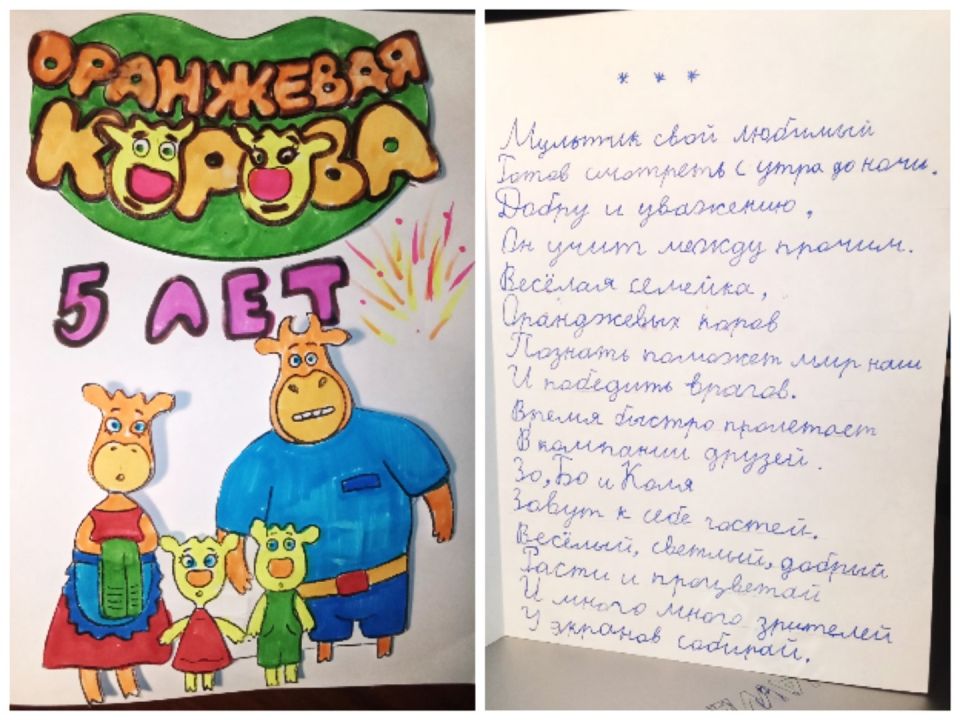 ОРАНЖЕВАЯ
КОРОВА
5 ЛЕТ
* * *
Мультик свой любимый
Готов смотреть с утра до ночи.
Добру и уважению,
Он учит между прочим.
Весёлая семейка,
Оранджевых коров
Познать поможет мир наш
И победить врагов.
Время быстро пролетает
В компании друзей.
Зо, Бо и Коля
Зовут к себе гостей.
Весёлый, светлый, добрый
Расти и процветай
И много много зрителей
У экранов собирай.